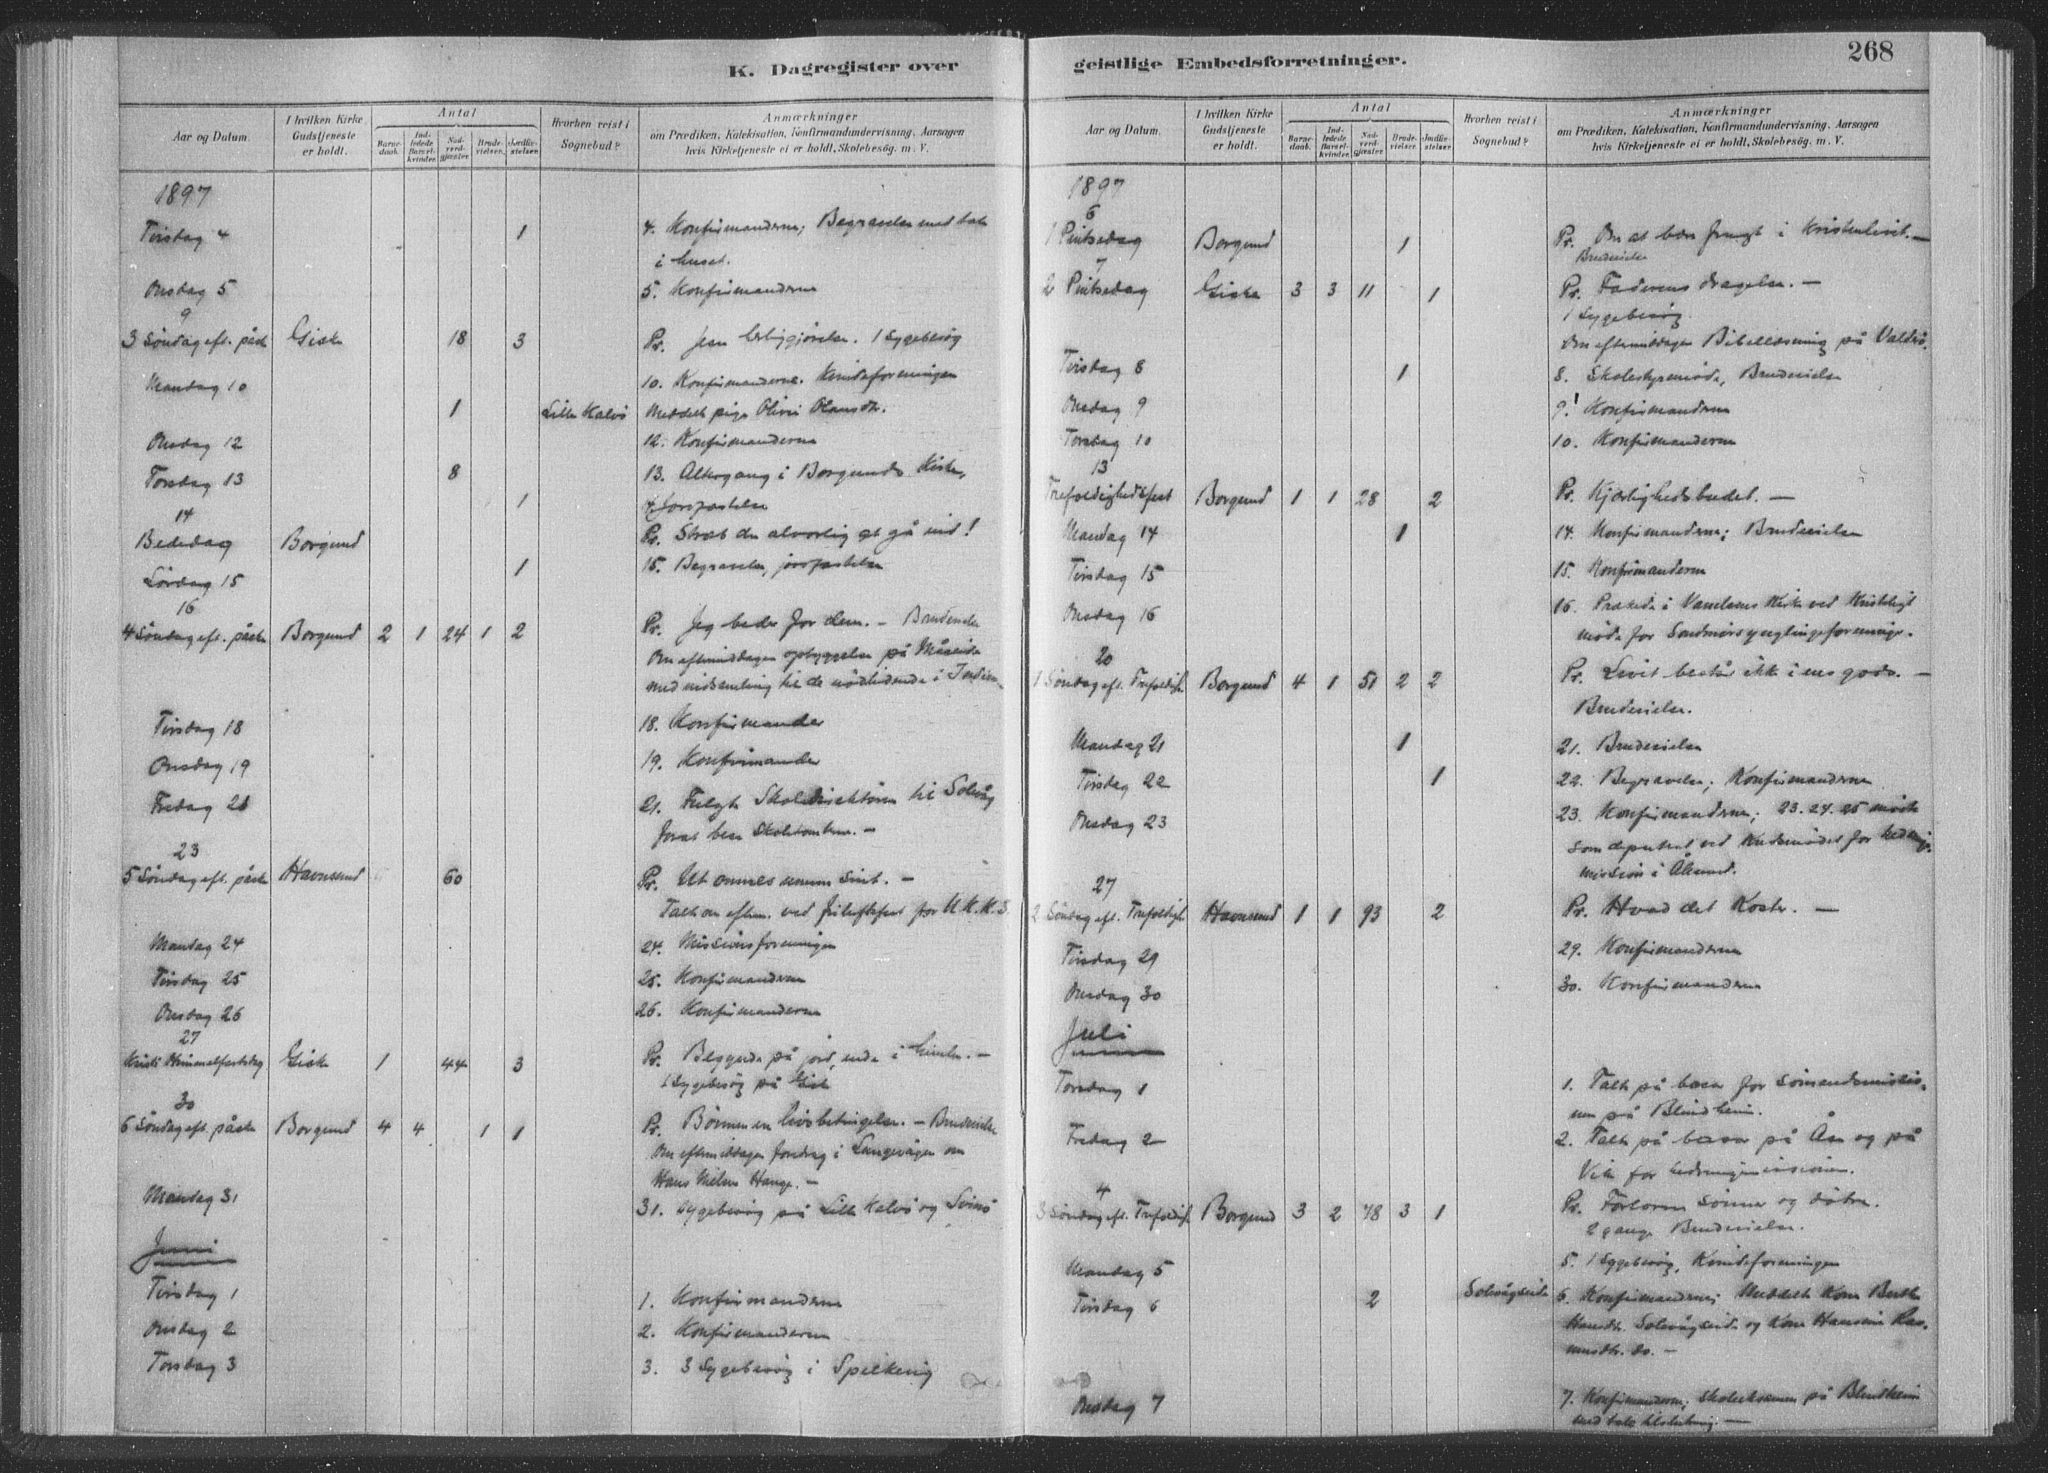 K. Dagregister over
Aar og Datum.
I hvilken Kirke Gudstjeneste er holdt.
Antal
Barnedaab.
Indledede Barselkvinder.
Nadverdgjæster.
Brudevielser.
Jordfæstelser.
Hvorhen reist i Sognebud?
Anmærkninger
om Prædiken, Katekisation, Konfirmandundervisning, Aarsagen
hvis Kirketjeneste ei er holdt, Skolebesøg. m. V.
1897
Tirsdag 4 1 4. Konfirmanderne; Begravelse med tale
i huset.
Onsdag 5 5. Konfirmanderne
9
3 Søndag eft. påske Giske 18 3 Pr. Jesu 1 Sygebesøg
Mandag 10 10. Konfirmanderne. Kvindeforeningen
1 Lille Kalvø Meddelt pige Olivi Olausdr.
Onsdag 12 12. Konfirmanderne
Torsdag 13 8 13. Altergang i Borgunds Kirke,
1 Jordfæstelse
14
Bededag Borgund Pr. Stræb de alvorlig at gå ind!
Lørdag 15 1 15. Begravelse, jordfæstelse
16
4 Søndag eft. påske Borgund 2 1 24 1 2 Pr. Jeg beder for dem. – Brudevielse
Om eftermiddagen opbyggelse på Måseide
med indsamling til de nødlidende i Indien.
Tirsdag 18 18. Konfirmander
Onsdag 19 19. Konfirmander
Fredag 21 21. Fulgte Skoledirektøren til Solvåg
for at bese Skoletomten. –
23
5 Søndag eft. påske Havnsund 60 Pr. Ut omnes unum sint. –
Talte om efterm. ved friluftsfest for U. K. K. S.
Mandag 24 24. Missionsforeningen
Tirsdag 25 25. Konfirmanderne
Onsdag 26 26. Konfirmanderne
27
Kristi Himmelfartsdag Giske 1 44 3 Pr. Begynde på jord, ende i himlen. –
1 Sygebesøg på Giske
30
6 Søndag eft. påske Borgund 4 4 1 1 Pr. Bønnen en livsbetingelse. – Brudevielse
Om eftermiddagen foredrag i Langevågen om
Hans Nielsen Hauge. –
Mandag 31 31. Sygebesøg på Lille Kalvø og Svinø
Juni
Tirsdag 1 1. Konfirmanderne
Onsdag 2 2. Konfirmanderne
Torsdag 3 3. 3 Sygebesøg i Spilkevig
geistlige Embedsforretninger.
268
Aar og Datum.
I hvilken Kirke Gudstjeneste er holdt.
Antal
Barnedaab.
Indledede Barselkvinder.
Nadverdgjæster.
Brudevielser.
Jordfæstelser.
Hvorhen reist i Sognebud?
Anmærkninger
om Prædiken, Katekisation, Konfirmandundervisning, Aarsagen
hvis Kirketjeneste ei er holdt, Skolebesøg. m. V.
1897
6
1 Pintsedag Borgund 1 Pr. Om at bære frugt i Kristenlivet. –
Brudevielse
7
2 Pintsedag Giske 3 3 11 1 Pr. Faderens dragelse. –
1 Sygebesøg.
Om eftermiddagen Bibellæsning på Valderø.
Tirsdag 8 1 8. Skolestyremøde, Brudevielse
Onsdag 9 9. Konfirmanderne
Torsdag 10 10. Konfirmanderne
13
Trefoldighedsfest Borgund 1 1 28 2 Pr. Kjærlighedsbudet. –
Mandag 14 1 14. Konfirmanderne; Brudevielse
Tirsdag 15 15. Konfirmanderne
Onsdag 16 16. Prækede i Vanelvens Kirke ved Kristeligt
møde for Søndmørs ynglingeforeninge.
20
1 Søndag eft. Trefoldigh. Borgund 4 1 51 2 2 Pr. Livet består ikke i ens gods. –
Brudevielse.
Mandag 21 1 21. Brudevielse
Tirsdag 22 1 22. Begravelse; Konfirmanderne
Onsdag 23 23. Konfirmanderne; 23. 24. 25 møtte
som deputeret ved Kredsmødet for hedninge-
mission i Ålesund.
27
2 Søndag eft. Trefoldigh. Havnsund 1 1 93 2 Pr. Hvad det koster. –
Tirsdag 29 29. Konfirmanderne
Onsdag 30 30. Konfirmanderne
Juli
Torsdag 1 1. Talte på basar for Sømandsmissio-
nen på Blindheim.
Fredag 2 2. Talte på basar på Åse og på
Vik for hedningemissionen.
4
3 Søndag eft. Trefoldigh. Borgund 3 2 78 3 1 Pr. Fortorne Sønner og døtre.
2 gange Brudevielse.
Mandag 5 5. 1 Sygebesøg, Kvindeforeningen
Tirsdag 6 2 Solevågseide 6. Konfirmanderne; Meddelt Kone Berthe
Hansdr. Solevågseide og Kone Hansine Ras-
musdtr. do. –
Onsdag 7 7. Konfirmanderne; Skoleeksamen på Blindheim
med tale tilslutning. –